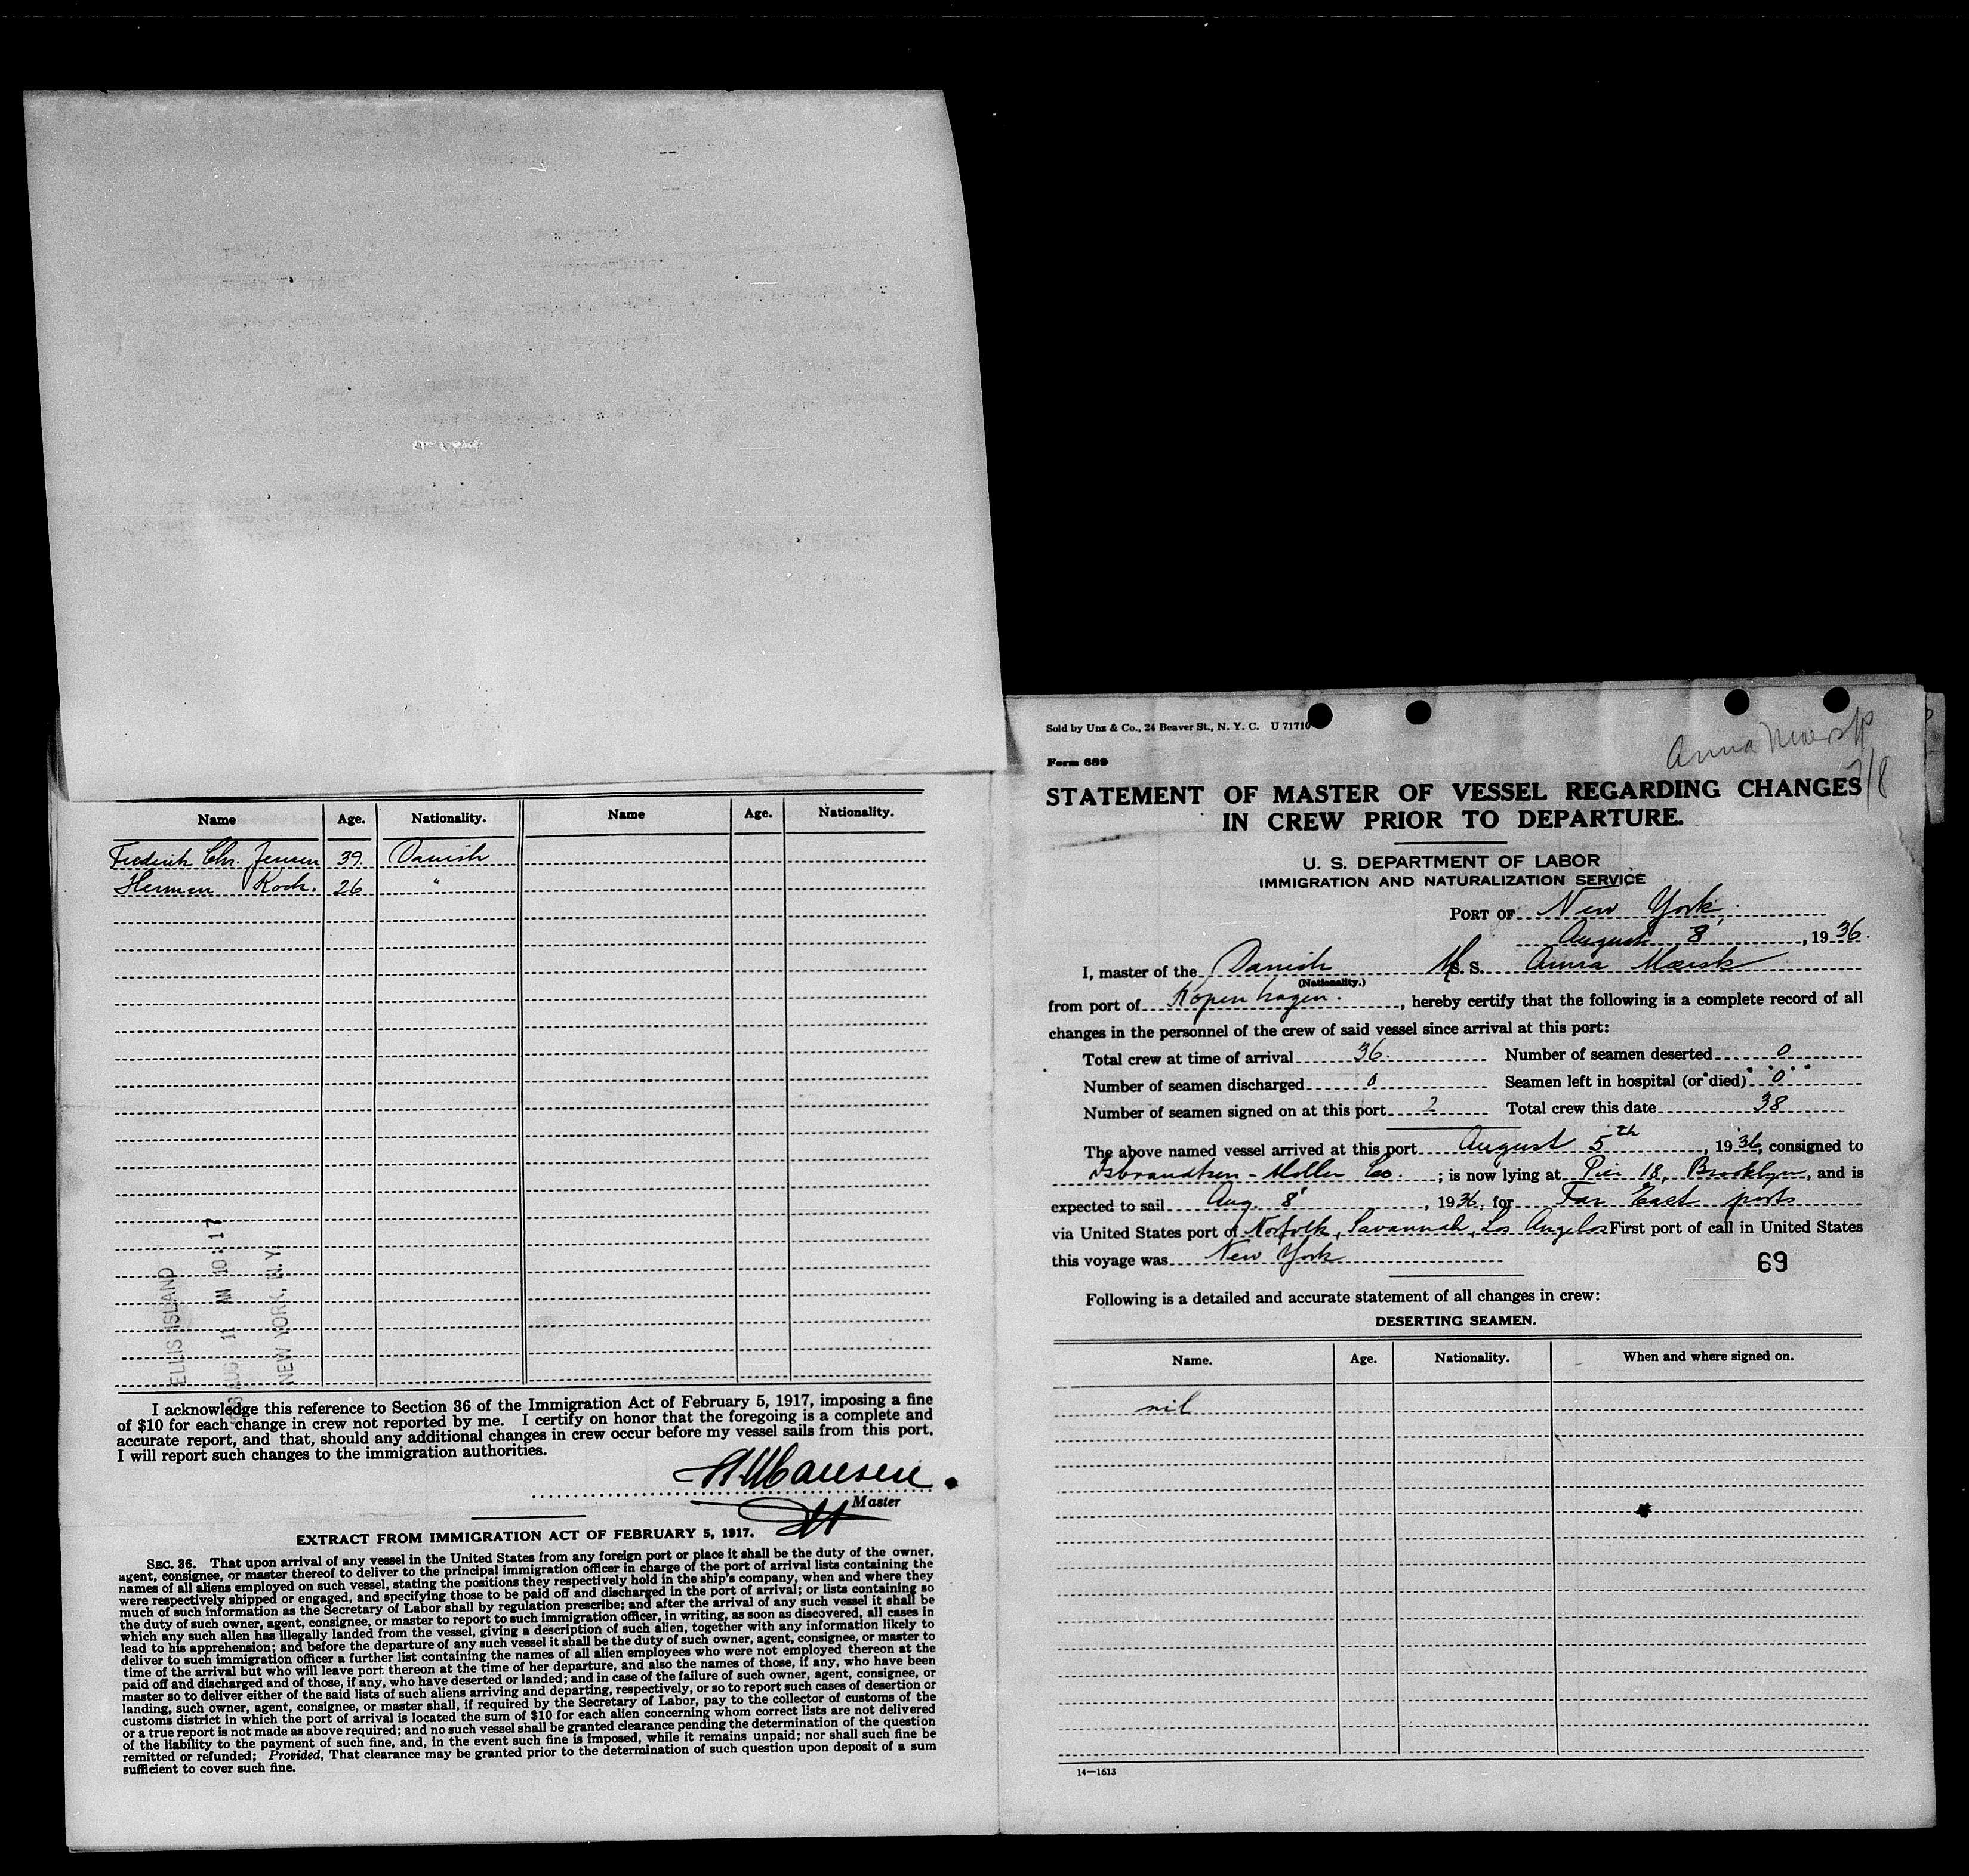 Name Age. Nationality. Name Age. Nationality.
Fredrick Chr. Jensen 39. Danish
Herman Koch. 26 "
ELLIS ISLAND
AUG 11 AM 10:17
NEW YORK, N.Y.
I acknowledge this reference to Section 36 of the Immigration Act of February 5, 1917, imposing a fine
of $10 for each change in crew not reported by me. I certify on honor that the foregoing is a complete and
accurate report, and that, should any additional changes in crew occur before my vessel sails from this port,
I will report such changes to the immigration authorities.
Master
EXTRACT FROM IMMIGRATION ACT OF FEBRUARY 5, 1917.
SEC. 36. That upon arrival of any vessel in the United States from any foreign port or place it shall be the duty of the owner,
agent, consignee, or master thereof to deliver to the principal immigration officer in charge of the port of arrival lists containing the
names of all aliens employed on such vessel, stating the positions they respectively hold in the ship's company, when and where they
were respectively shipped or engaged, and specifying those to be paid off and discharged in the port of arrival; or lists containing so
much of such information as the Secretary of Labor shall by regulation prescribe; and after the arrival of any such vessel it shall be
the duty of such owner, agent, consignee, or master to report to such immigration officer, in writing, as soon as discovered, all cases in
which any such alien has illegally landed from the vessel, giving a description of such alien, together with any information likely to
lead to his apprehension; and before the departure of any such vessel it shall be the duty of such owner, agent, consignee, or master to
deliver to such immigration officer a further list containing the names of all alien employees who were not employed thereon at the
time of the arrival but who will leave port thereon at the time of her departure, and also the names of those, if any, who have been
paid off and discharged and of those, if any, who have deserted or landed; and in case of the failure of such owner, agent, consignee, or
master so to deliver either of the said lists of such aliens arriving and departing, respectively, or so to report such cases of desertion or
landing, such owner, agent, consignee, or master shall, if required by the Secretary of Labor, pay to the collector of customs of the
customs district in which the port of arrival is located the sum of $10 for each alien concerning whom correct lists are not delivered
or a true report is not made as above required; and no such vessel shall be granted clearance pending the determination of the question
of the liability to the payment of such fine, and, in the event such fine is imposed, while it remains unpaid; nor shall such fine be
remitted or refunded; Provided, That clearance may be granted prior to the determination of such question upon deposit of a sum
sufficient to cover such fine.
Sold by Unz & Co., 24 Beaver St., N. Y. C. U 71710
Anna Maersk
7/8
Form 689
STATEMENT OF MASTER OF VESSEL REGARDING CHANGES
IN CREW PRIOR TO DEPARTURE.
U. S. DEPARTMENT OF LABOR
IMMIGRATION AND NATURALIZATION SERVICE
PORT OF New York.
August 8', 1936.
I, master of the Danish M.S. S. Anna Mærsk
(Nationality.)
from port of Kopenhagen., hereby certify that the following is a complete record of all
changes in the personnel of the crew of said vessel since arrival at this port:
Total crew at time of arrival 36. Number of seamen deserted 0
Number of seamen discharged 0 Seamen left in hospital (or died) "0"
Number of seamen signed on at this port 2 Total crew this date 38
The above named vessel arrived at this port August 5th, 1936, consigned to
Isbrandtsen-Moller Co.; is now lying at Pier 18, Brooklyn, and is
expected to sail Aug. 8', 1936, for Far East ports
via United States port of Norfolk, Savannah, Los Angelos First port of call in United States
this voyage was New York
69
Following is a detailed and accurate statement of all changes in crew:
DESERTING SEAMEN.
Name. Age. Nationality. When and where signed on.
nil
14—1613